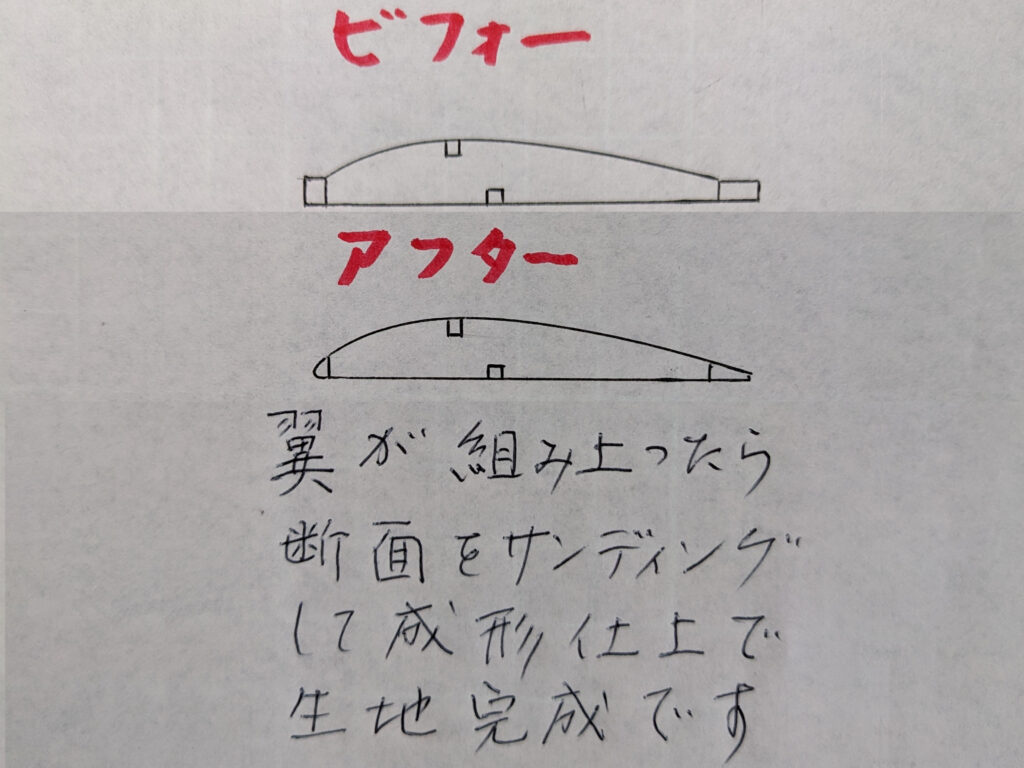 ビフォー
アフター
翼が組み上ったら
断面をサンディング
して成形仕上で
生地完成です